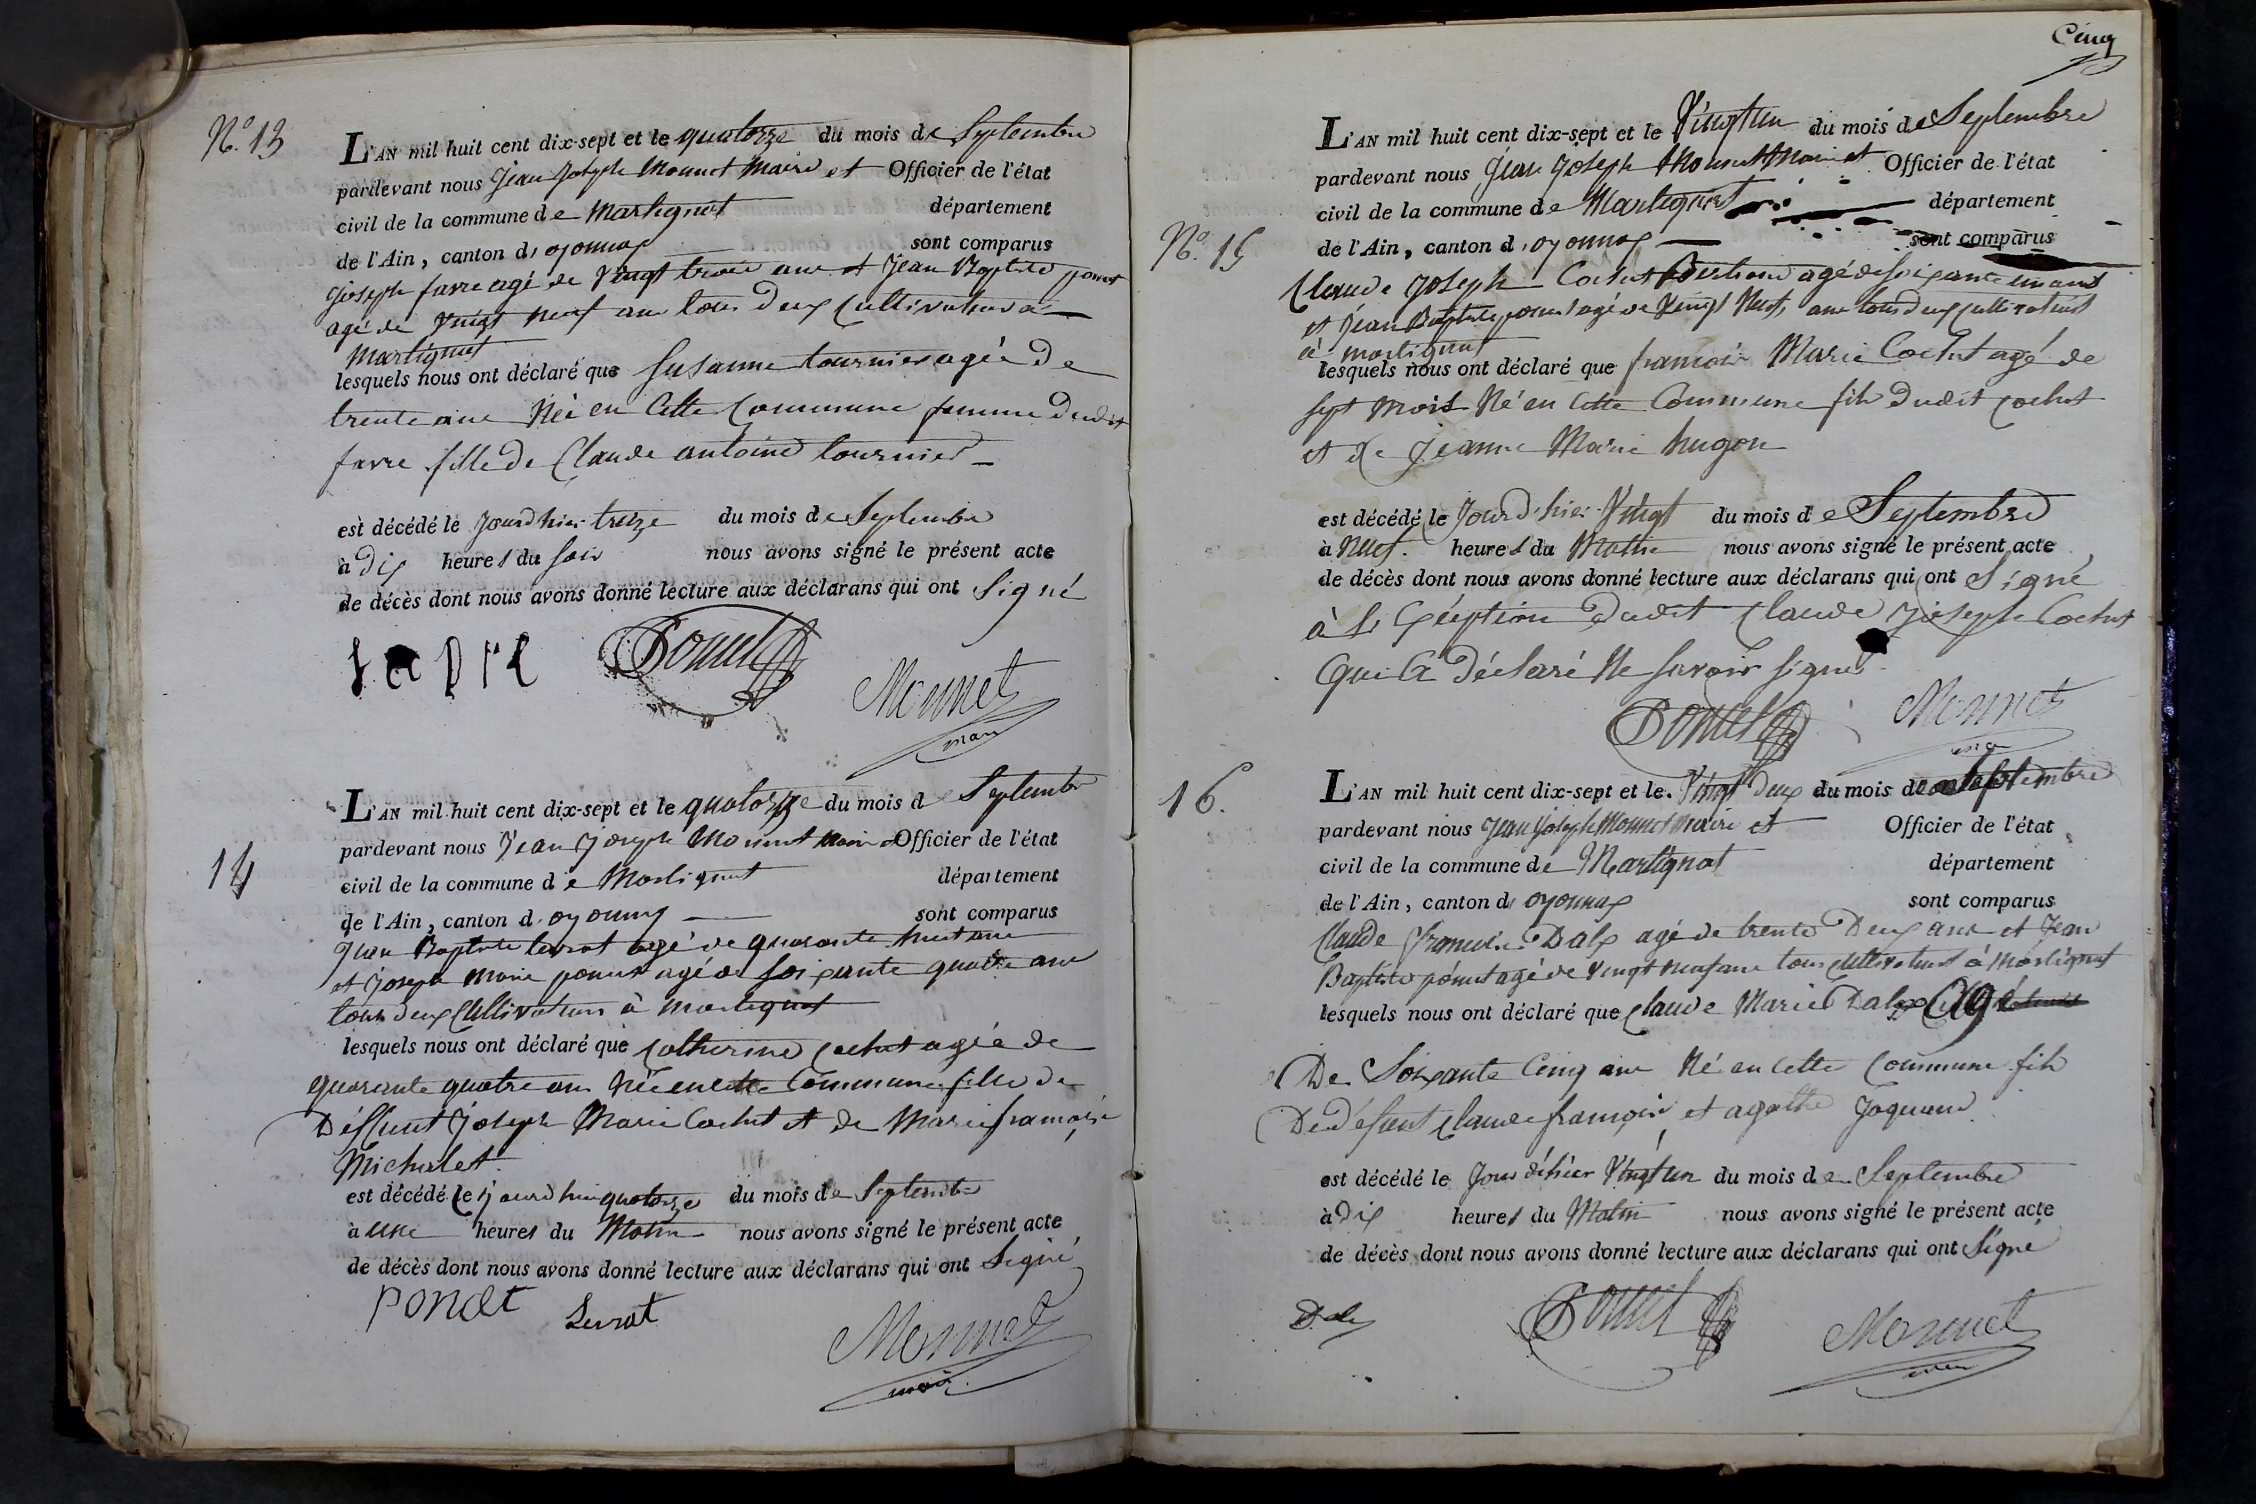 N.º 13
L'AN mil huit cent dix-sept et le quatorze du mois de Septembre
pardevant nous Jean Joseph Monnet Maire et Officier de l'état
civil de la commune de Martignat département
de l'Ain, canton d'oyonnax sont comparus
Joseph favre agé de Vingt trois ans et Jean Baptiste ponet
agé de Vingt neuf ans tous deux Cultivateurs à
Martignat
lesquels nous ont déclaré que Susanne tournier agée De
trente ans Née en Cette Commune femme Dudit
favre fille De Claude antoine tournier
est décédé le Jourd'hier treize du mois de Septembre
à Dix heures du Soir nous avons signé le présent acte
de décès dont nous avons donné lecture aux déclarans qui ont Signé
favre Ponet Monnet
maire
14
L'AN mil huit cent dix-sept et le quatorze du mois d Septembre
pardevant nous Jean Joseph Monnet Maire et Officier de l'état
civil de la commune de Martignat département
de l'Ain, canton d'oyonnax sont comparus
Jean Baptiste levrat agé de quarante huit ans
et Joseph Marie ponet agé de Soixante quatre ans
tous deux Cultivateurs à Martignat
lesquels nous ont déclaré que Catherine Cochet agée de
quarante quatre ans Née en cette Commune fille De
Déffunt Joseph Marie Cochet et de Marie françoise
Michalet
est décédé le jourd'hui quatorze du mois de Septembre
à une heures du Matin nous avons signé le présent acte
de décès dont nous avons donné lecture aux déclarans qui ont Signé
Ponet Levrat Monnet
maire
Cinq
N.º 15
L'AN mil huit cent dix-sept et le Vingt un du mois de Septembre
pardevant nous Jean Joseph Monnet Maire et Officier de l'état
civil de la commune de Martignat département
de l'Ain, canton d'oyonnax sont comparus
Claude Joseph Cochet agé de Soixante un ans
et Jean Baptiste ponet agé de Vingt Neuf ans tous deux Cultivateurs
à martignat
lesquels nous ont déclaré que françois Marie Cochet agé de
Sept Mois Né en Cette Commune fils Dudit Cochet
et De Jeanne Marie hugon
est décédé le Jourd'hier Vingt du mois de Septembre
à Neuf heures du Matin nous avons signé le présent acte
de décès dont nous avons donné lecture aux déclarans qui ont Signé
à L'Exéption Dudit Claude Joseph Cochet
Qui a Déclaré Ne Savoir Signer
Ponet Monnet
16.
L'AN mil huit cent dix-sept et le Vingt Deux du mois de Septembre
pardevant nous Jean Joseph Monnet Maire et Officier de l'état
civil de la commune de Martignat département
de l'Ain, canton d'oyonnax sont comparus
Claude françois Dalx agé de trente Deux ans et Jean
Baptiste ponet agé de Vingt neuf ans tous Cultivateurs à Martignat
lesquels nous ont déclaré que Claude Marie Dalx Agé
De Soixante Cinq ans Né en Cette Commune fils
De Défunt Claude françois et agathe Joquand
est décédé le Jour d'hier Vingt un du mois de Septembre
à Dix heures du Matin nous avons signé le présent acte
de décès dont nous avons donné lecture aux déclarans qui ont Signé
Ponet Monnet